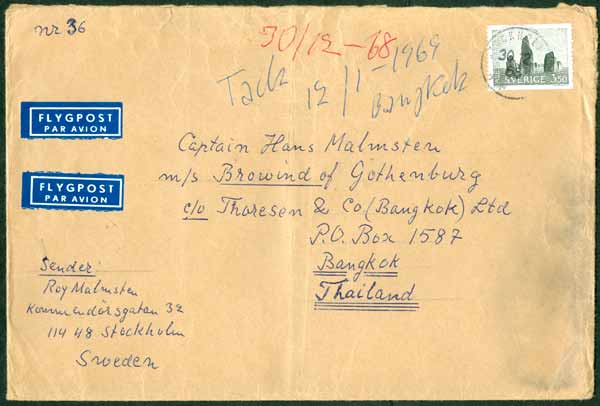 nr 36
30/12-68
Tack 12/1-1969
Bangkok
30 12
SVERIGE 3.50
FLYGPOST
PAR AVION
FLYGPOST
PAR AVION
Captain Hans Malmsten
m/s Browind of Gothenburg
c/o Thoresen & Co (Bangkok) Ltd
P.O. Box 1587
Bangkok
Thailand
Sender:
Roy Malmsten
Kommendörsgatan 32
114 48 Stockholm
Sweden